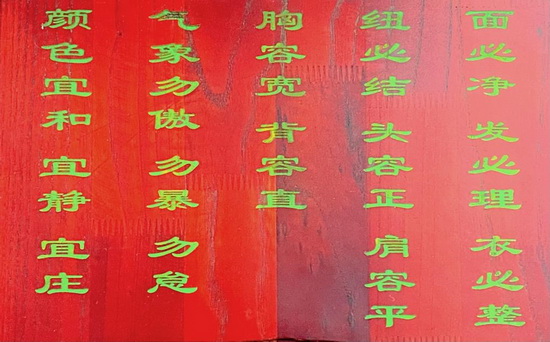 面必净 发必理 衣必整
纽必结 头容正 肩容平
胸容宽 背容直
气象勿傲 勿暴 勿怠
颜色宜和 宜静 宜庄